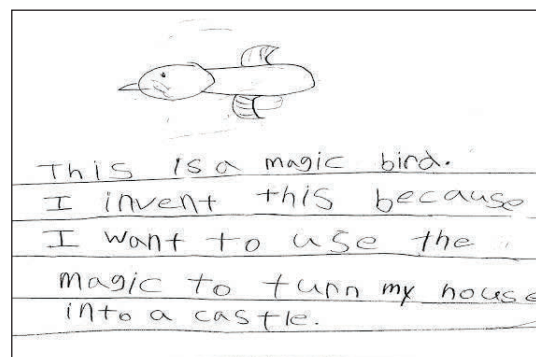 This is a magic bird.
I invent this because
I want to use the
magic to turn my house
into a castle.